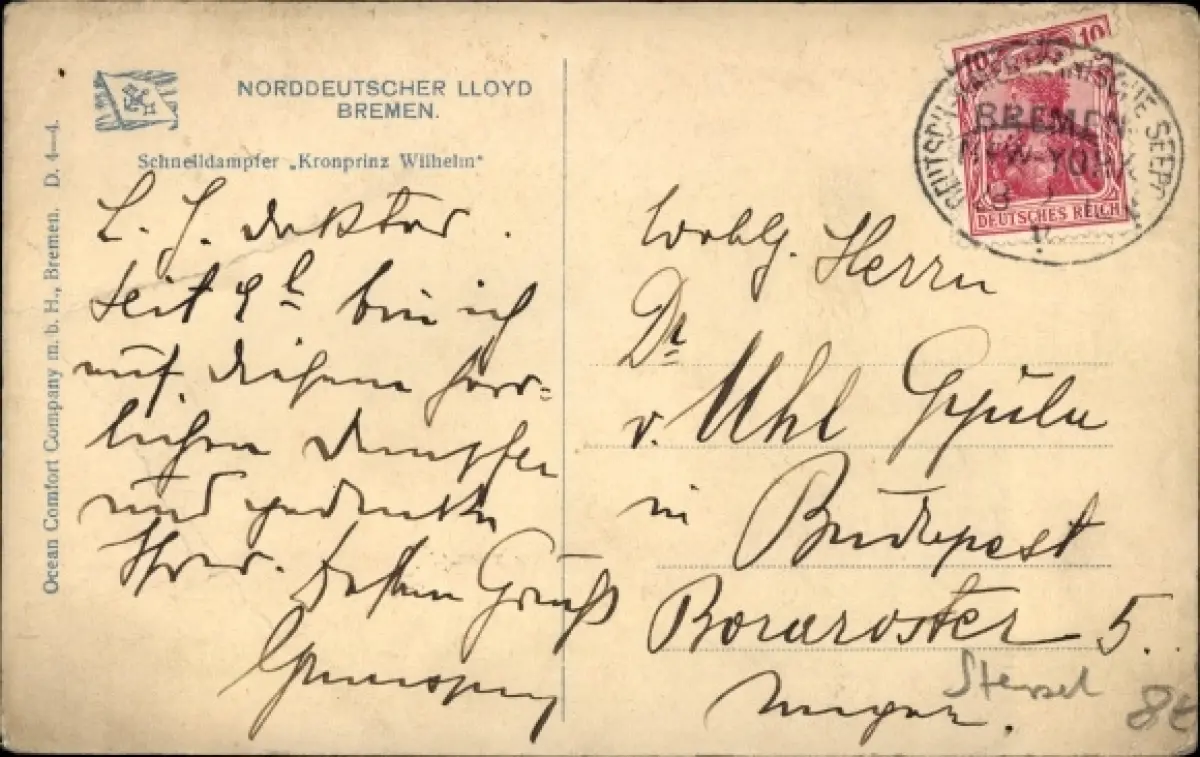 NORDDEUTSCHER LLOYD
BREMEN.
Schnelldampfer „Kronprinz Wilhelm“
L. H. Doktor.
Seit 9 h bin ich
auf diesem herr-
lichen Dampfer
und gedenke
Ihrer. Besten Gruß
Ocean Comfort Company m. b. H., Bremen. D. 4—4.
10 10
DEUTSCHES REICH
BREMEN
NEW-YORK
Wohlg. Herrn
Dr
v. Uhl Gyula
in Budapest
Boraroster 5.
Ungar.
Stempel
8t